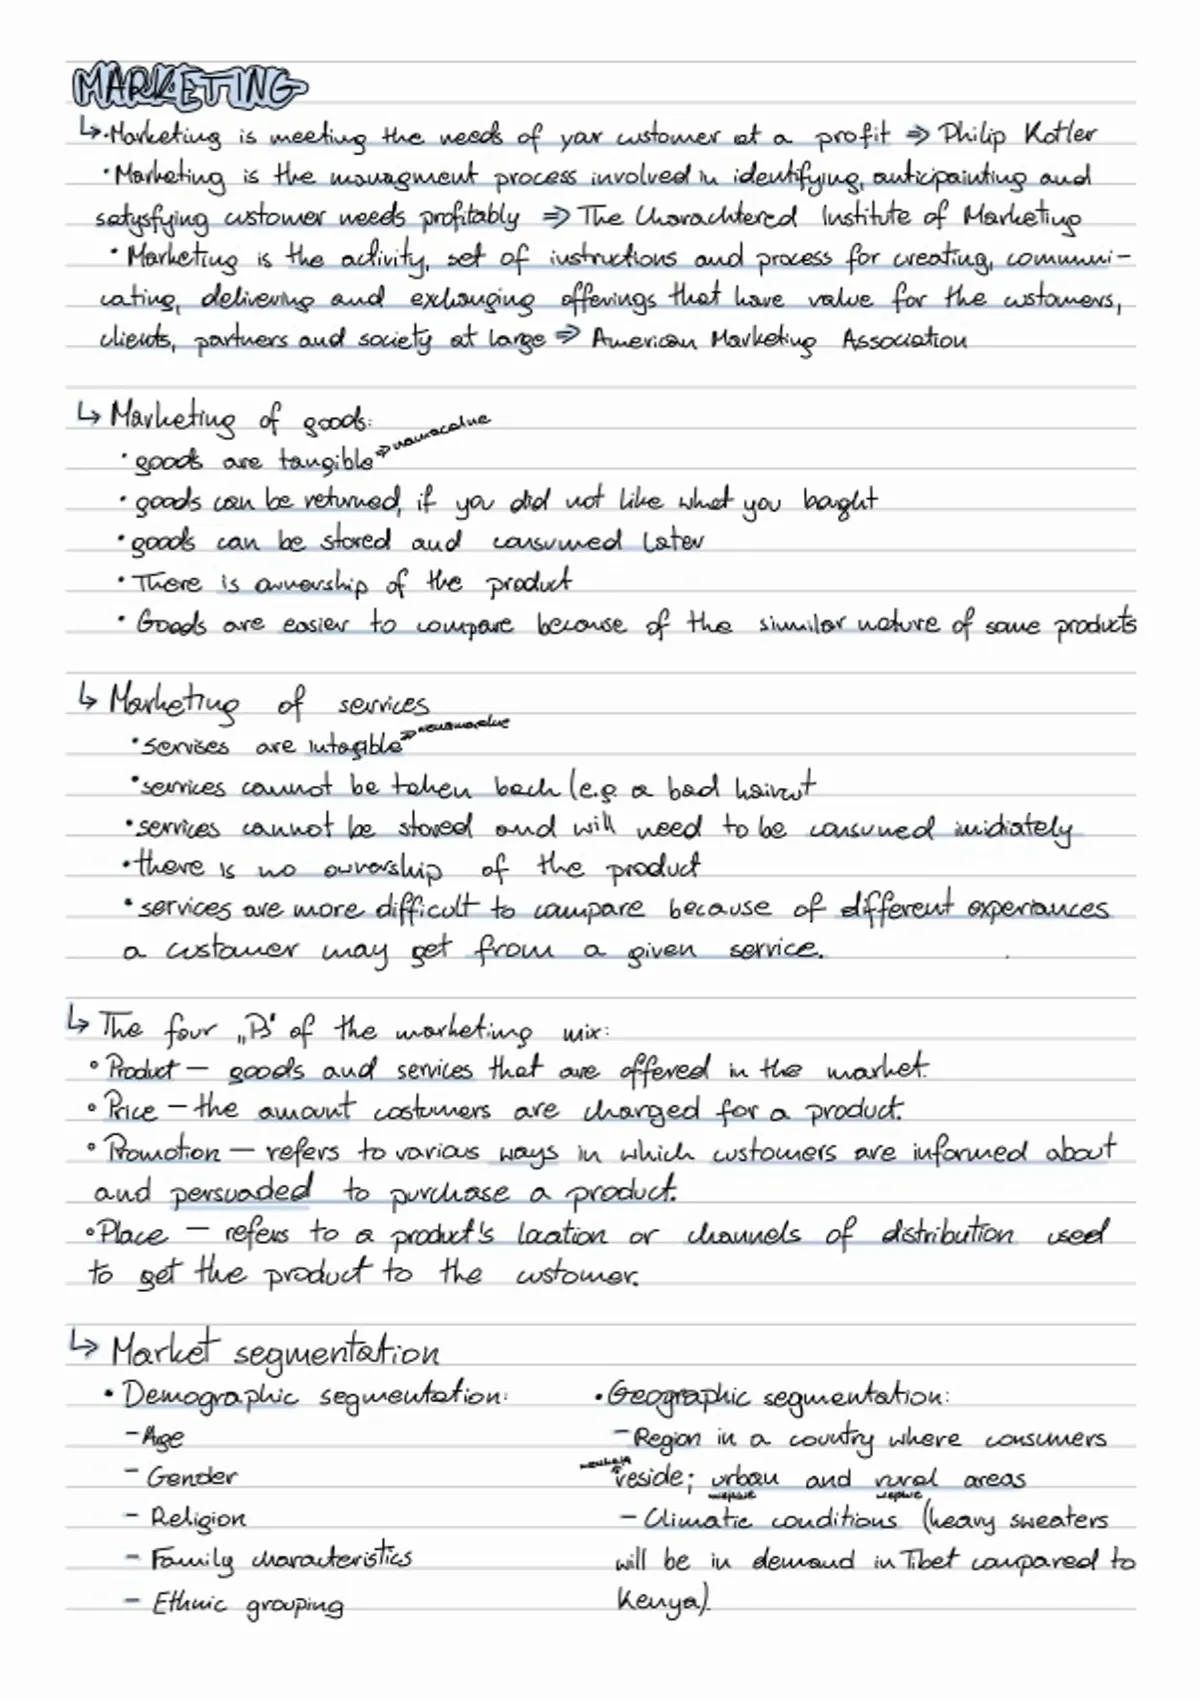 MARKETING
↳•Marketing is meeting the needs of your customer at a profit ⇒ Philip Kotler
•Marketing is the managment process involved in identifying, anticipainting and
satysfying customer needs profitably ⇒ The Charachtered Institute of Marketing
• Marketing is the activity, set of instructions and process for creating, communi-
cating, delivering and exchanging offerings that have value for the customers,
clients, partners and society at large ⇒ American Marketing Association
↳ Marketing of goods:
• goods are tangible ⇒
• goods can be returned, if you did not like what you bought
• goods can be stored and consumed later
• There is ownership of the product
• Goods are easier to compare because of the simmilar nature of some products
↳ Marketing of services
• servises are intagible ⇒
• services cannot be taken back (e.g. a bad haircut
• services cannot be stored and will need to be consumed imidiately
• there is no ownership of the product
• services are more difficult to compare because of different experiances
a customer may get from a given service.
↳ The four „P" of the marketing mix:
• Product — goods and services that are offered in the market.
• Price — the amount costumers are charged for a product.
• Promotion — refers to various ways in which customers are informed about
and persuaded to purchase a product.
• Place — refers to a product's location or channels of distribution used
to get the product to the customer.
↳ Market segmentation
• Demographic segmentation:
- Age
- Gender
- Religion
- Family characteristics
- Ethnic grouping
• Geographic segmentation:
- Region in a country where consumers
reside; urban and rural areas
- Climatic conditions (heavy sweaters
will be in demand in Tibet compared to
Kenya).